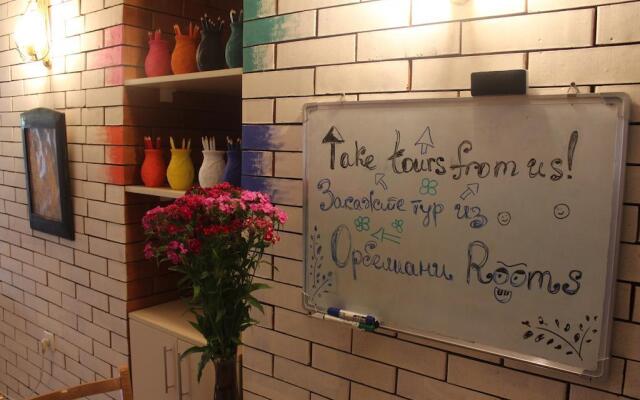 Take tours from us!
Закажите тур из
Орбелиани Rooms